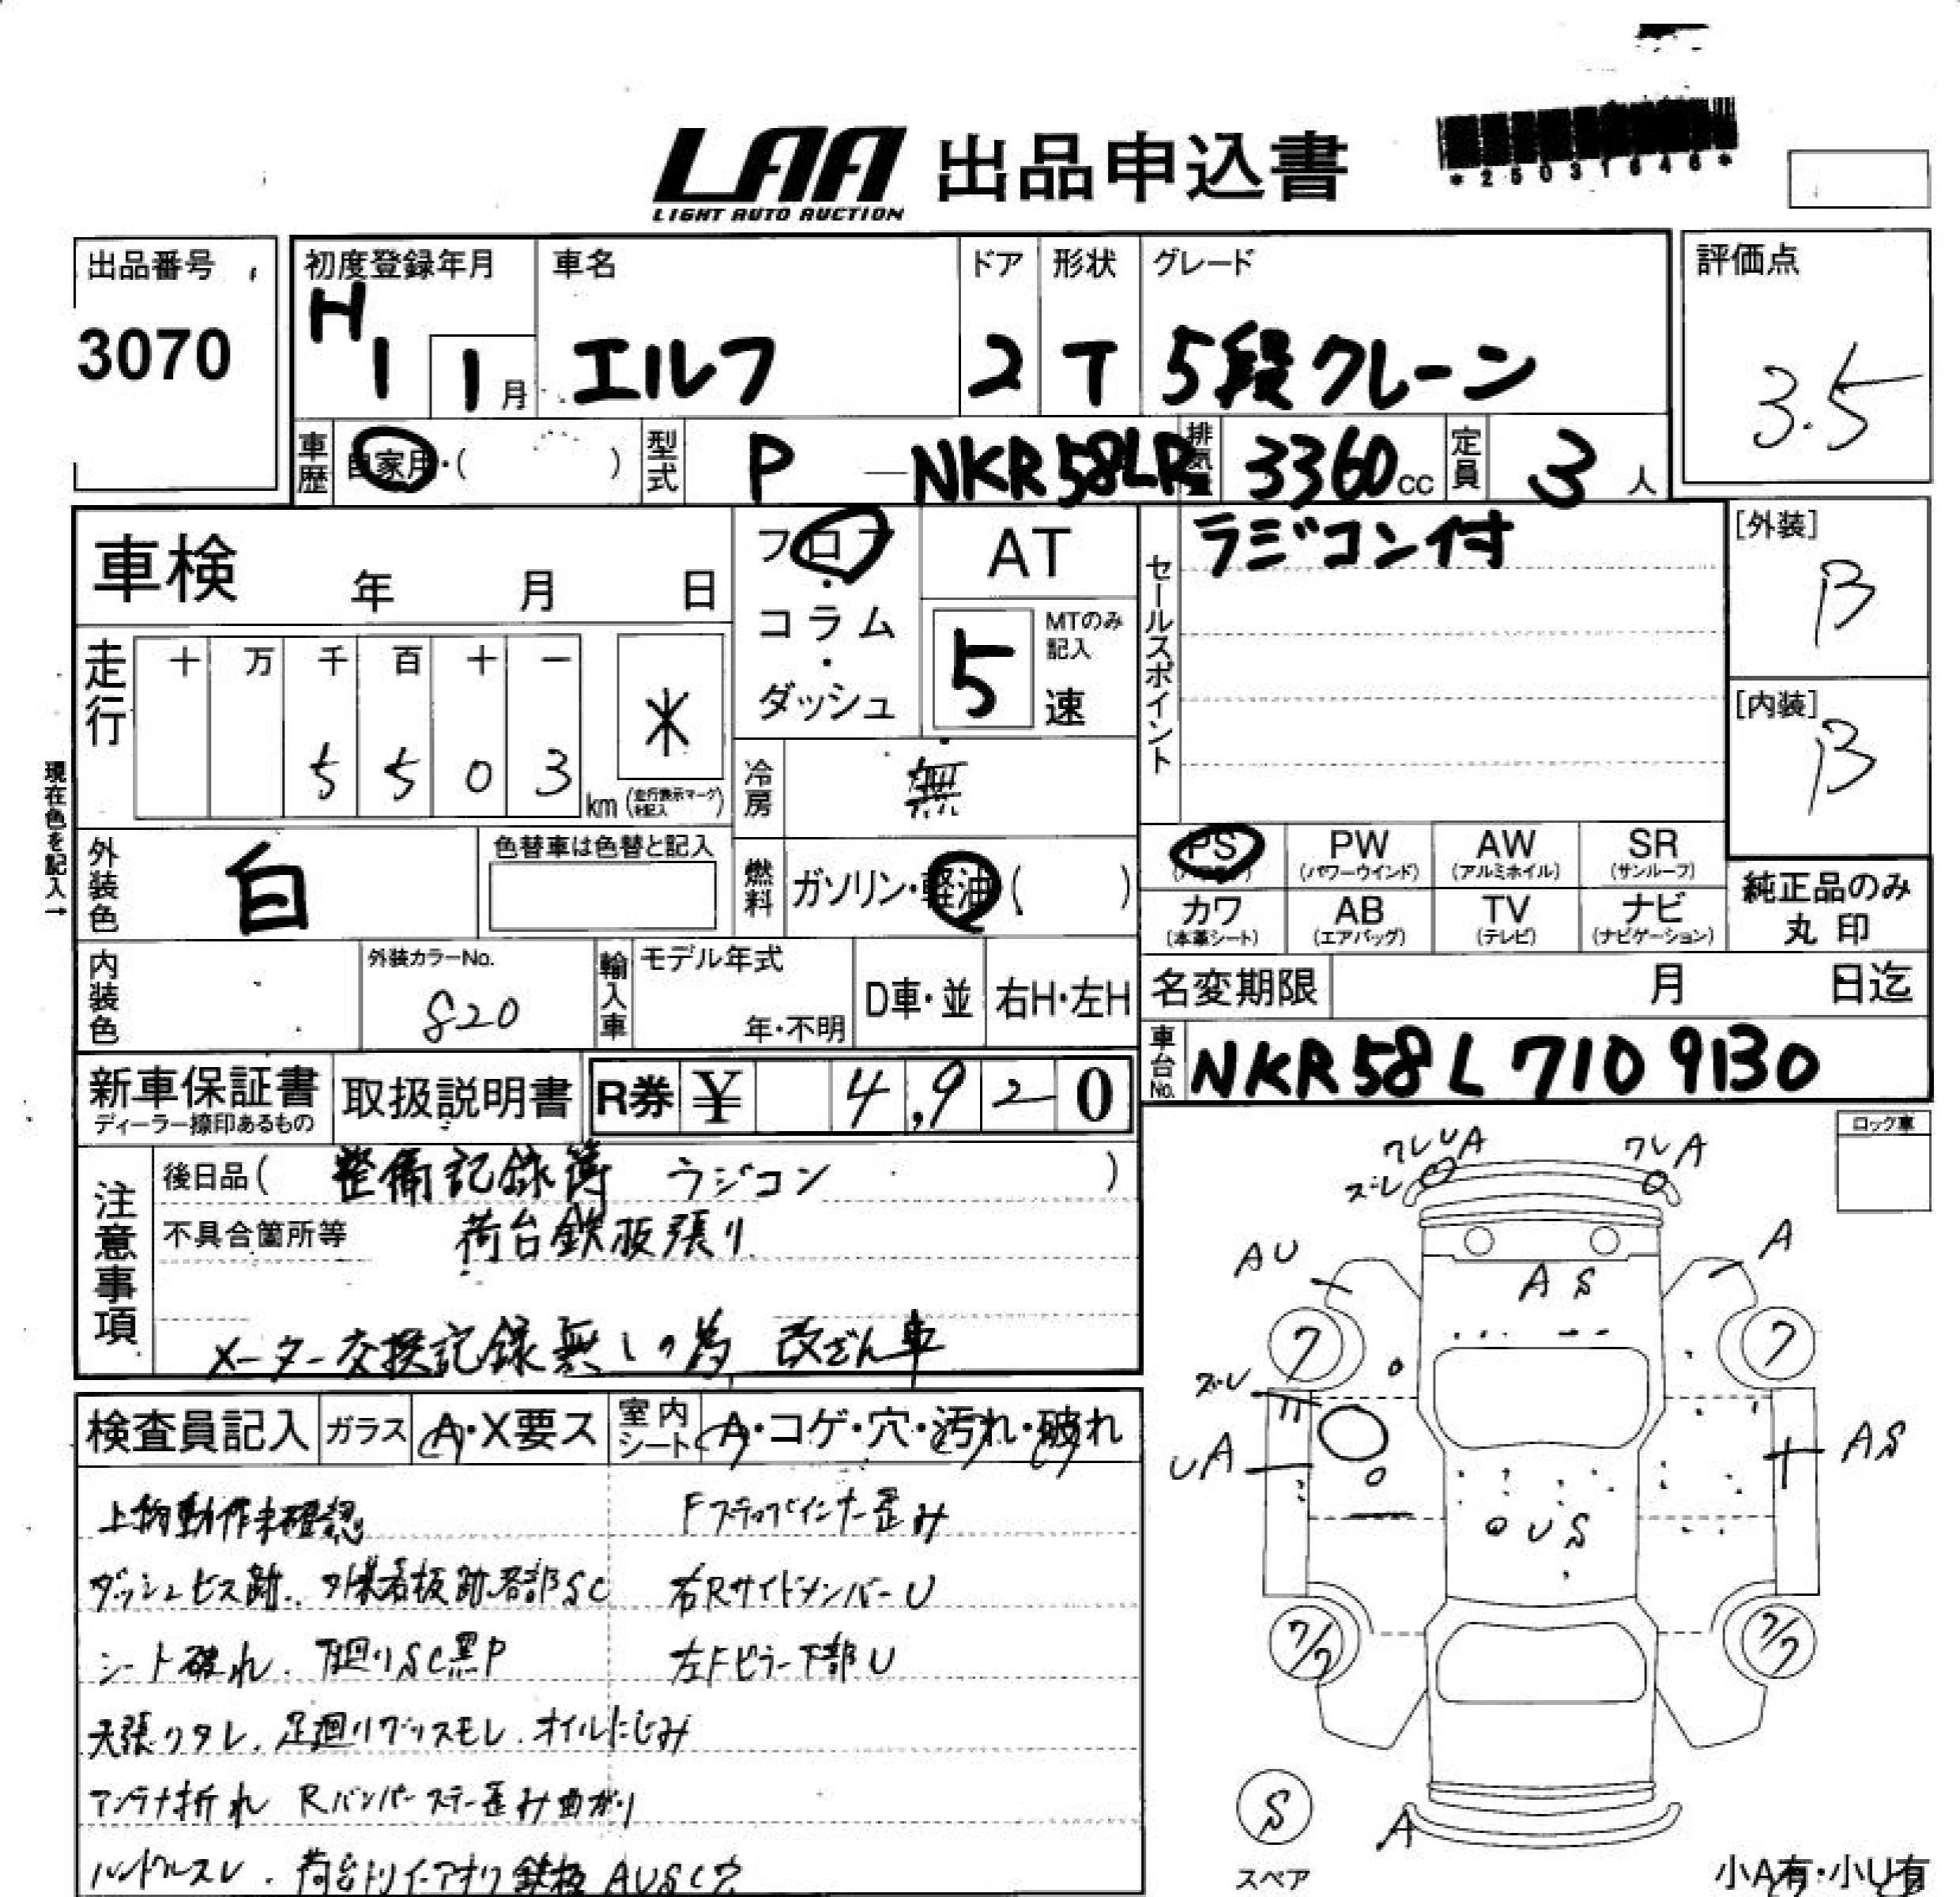 LAA 出品申込書
LIGHT AUTO AUCTION
*25031646*
出品番号
3070
初度登録年月
H1 1月
車名
エルフ
ドア
2
形状
T
グレード
5段クレーン
評価点
3.5
車歴 自家用・( )
型式 P-NKR58LR
排気量 3360cc
定員 3人
車検 年 月 日
フロア・コラム・ダッシュ
AT
MTのみ記入
5速
セールスポイント
ラジコン付
[外装]
B
[内装]
B
走行
十 万 千 百 十 一
5 5 0 3 km
*
(走行表示マークを記入)
現在色を記入→
冷房 無
外装色 白
色替車は色替と記入
燃料 ガソリン・軽油( )
PS PW AW SR
(パワーウインド) (アルミホイル) (サンルーフ)
カワ AB TV ナビ
(本革シート) (エアバッグ) (テレビ) (ナビゲーション)
純正品のみ
丸印
内装色
外装カラーNo.
820
輸入車
モデル年式
年・不明
D車・並
右H・左H
名変期限 月 日迄
車台No. NKR58L 7109130
新車保証書
ディーラー捺印あるもの
取扱説明書
R券 ¥ 4,920
注意事項
後日品( 整備記録簿 ラジコン )
不具合箇所等 荷台鉄板張り
メーター交換記録無しの為 改ざん車
検査員記入
ガラス A・X要ス
室内シート A・コゲ・穴・汚れ・破れ
上物動作未確認 Fステップインナー歪み
ダッシュビス跡. 外装看板跡各部SC 右RサイドメンバーU
シート破れ. 下廻りSC黒P 左Fピラー下部U
天張りタレ. 足廻りグリスモレ. オイルにじみ
アンテナ折れ Rバンパーステー歪み曲がり
ハンドルスレ. 荷台トリイ-アオリ鉄板 AUSC穴
ロック車
ワレUA
ワレA
ズレ
AU
A
AS
7
7
ズレ
UA
AS
US
7/7
7/7
S
スペア
A
小A有・小U有